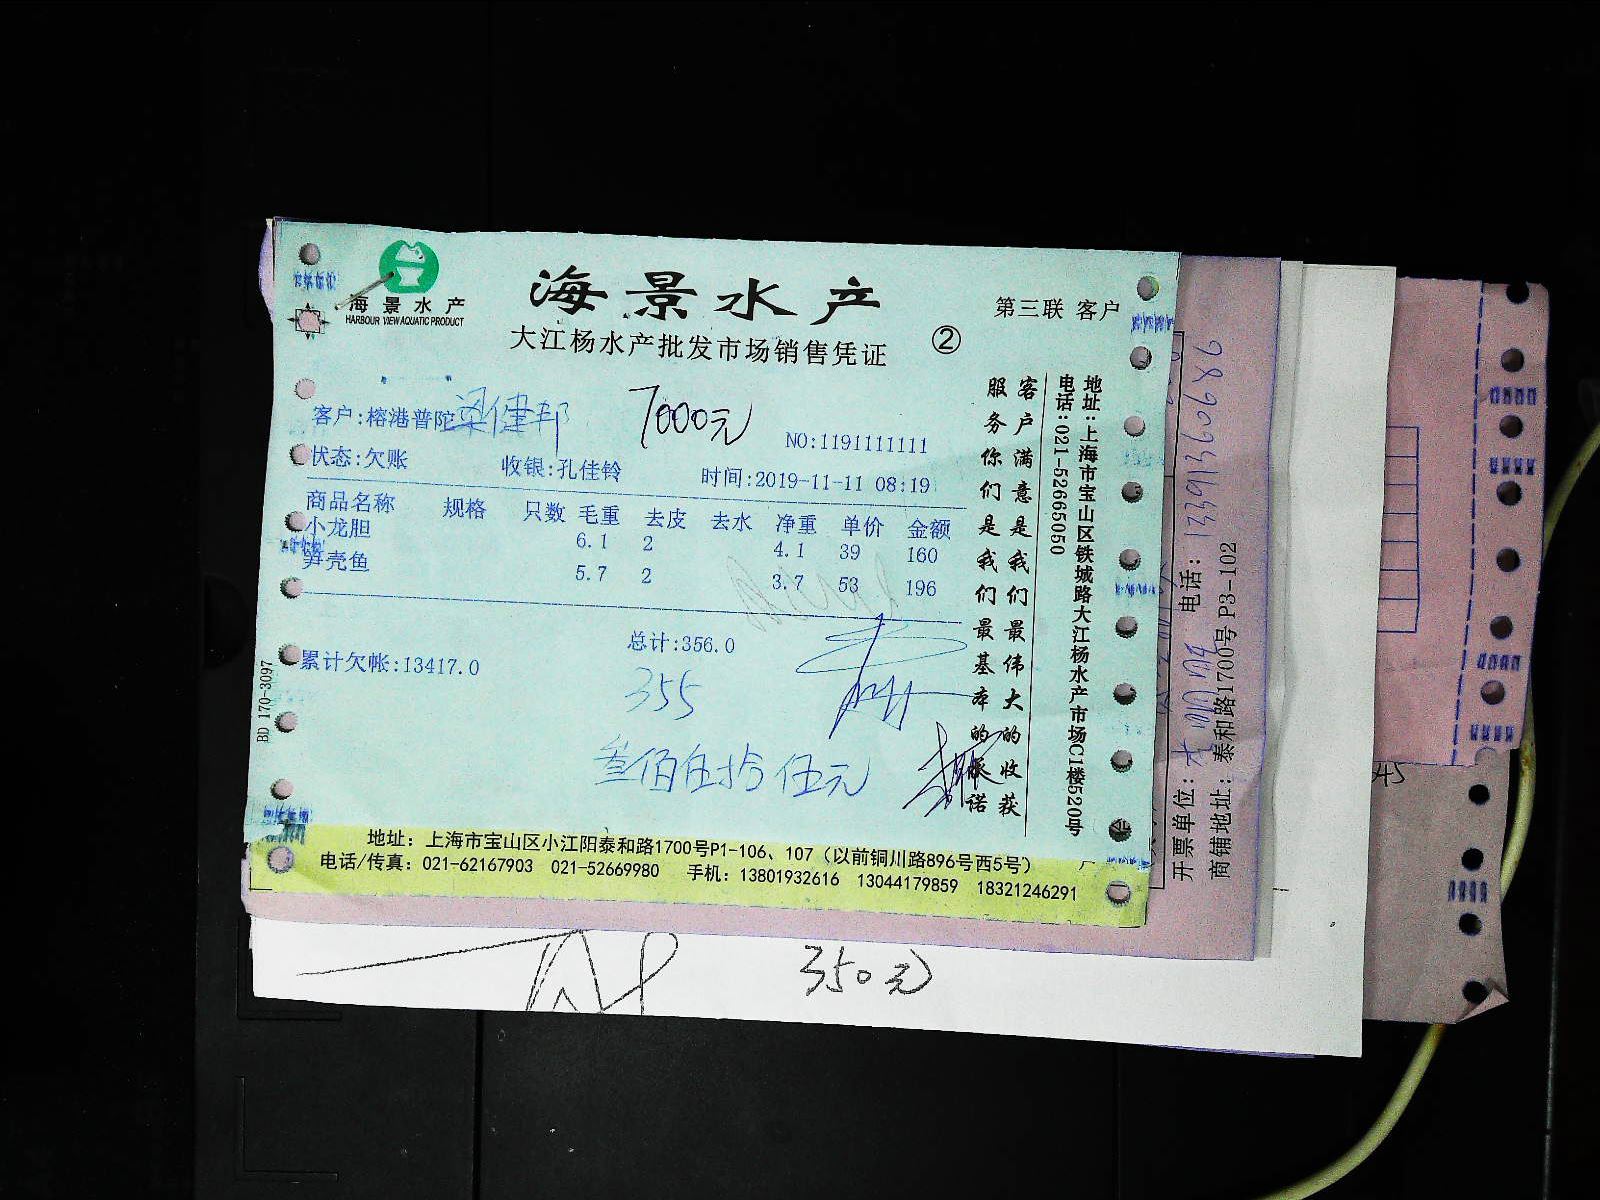 海景水产
HARBOUR VIEW AQUATIC PRODUCT
海景水产
大江杨水产批发市场销售凭证
②
第三联 客户
客户:榕港普陀梁健邦
7000元
NO:1191111111
状态:欠账 收银:孔佳铃 时间:2019-11-11 08:19
商品名称 规格 只数 毛重 去皮 去水 净重 单价 金额
小龙胆 6.1 2 4.1 39 160
笋壳鱼 5.7 2 3.7 53 196
总计:356.0
累计欠帐:13417.0
355
叁佰伍拾伍元
BD 170-3097
客户满意是我们最伟大的收获
服务你们是我们最基本的承诺
地址:上海市宝山区铁城路大江杨水产市场C1楼520号
电话:021-52665050
地址: 上海市宝山区小江阳泰和路1700号P1-106、107 (以前铜川路896号西5号)
电话/传真: 021-62167903 021-52669980 手机: 13801932616 13044179859 18321246291
开票单位:
电话: 13391360686
商铺地址: 泰和路1700号 P3-102
350元
45